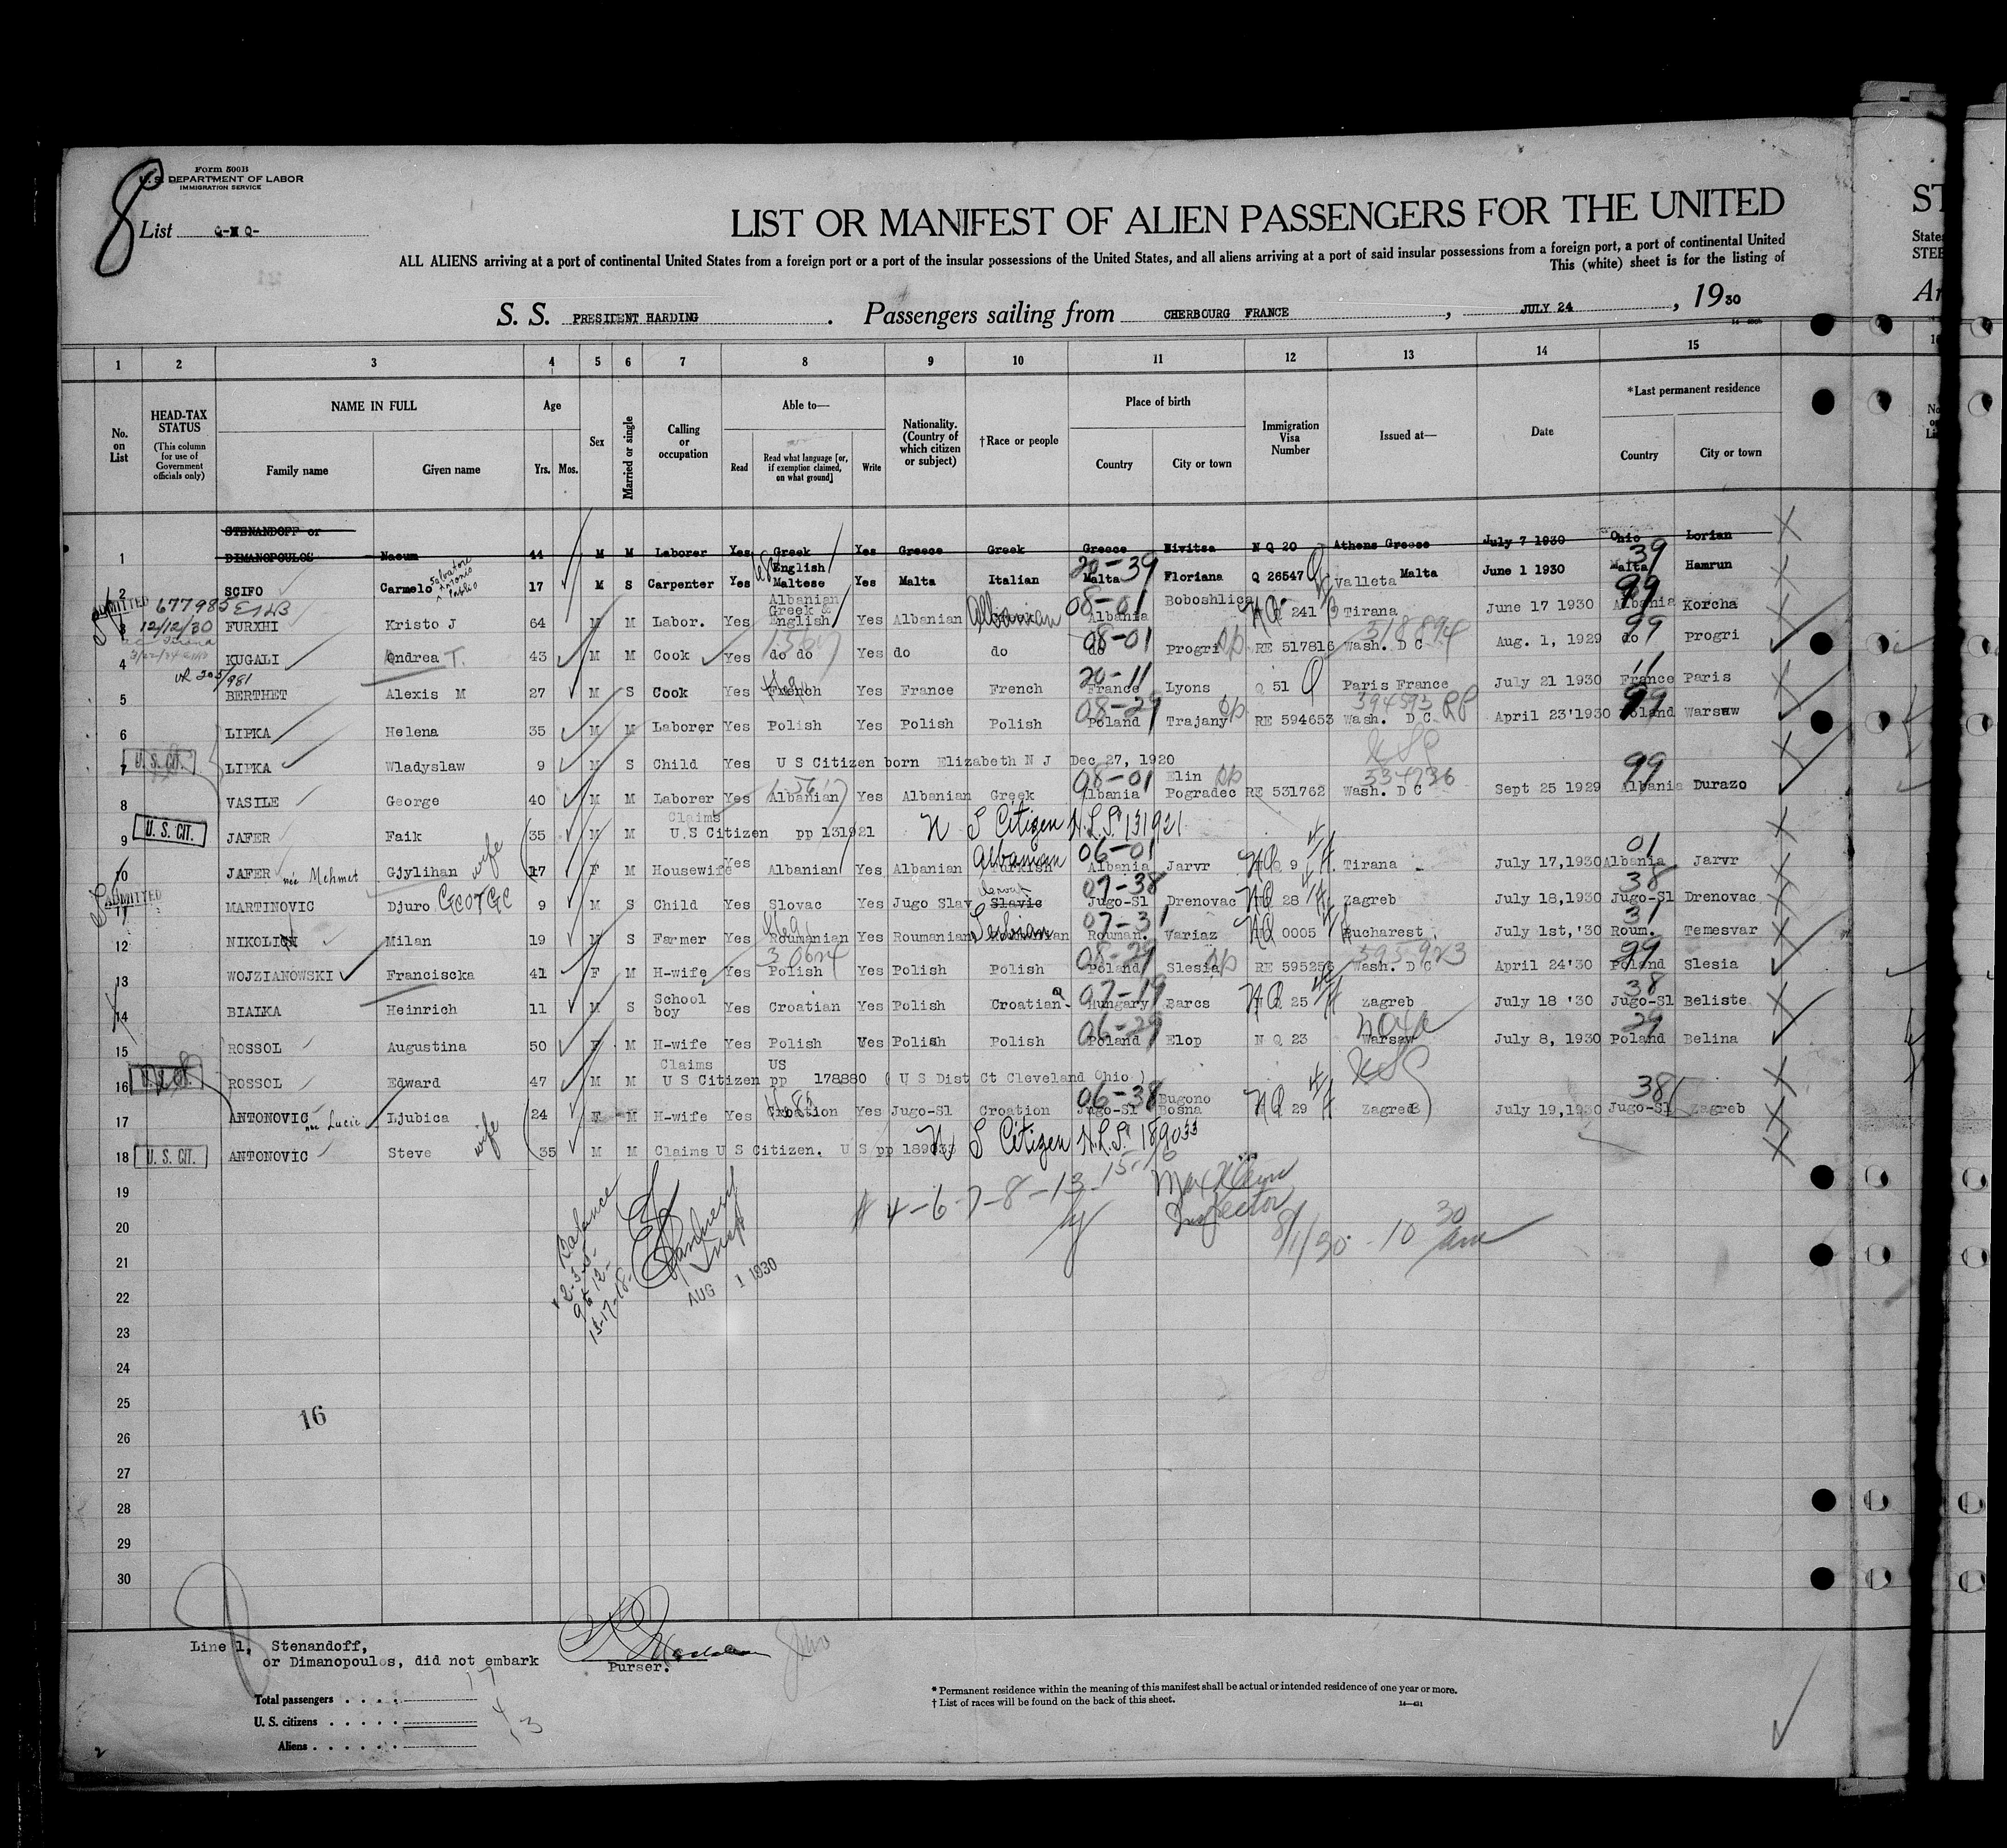 Form 500B
U. S. DEPARTMENT OF LABOR
IMMIGRATION SERVICE
8
List Q-N Q-
LIST OR MANIFEST OF ALIEN PASSENGERS FOR THE UNITED
ALL ALIENS arriving at a port of continental United States from a foreign port or a port of the insular possessions of the United States, and all aliens arriving at a port of said insular possessions from a foreign port, a port of continental United
This (white) sheet is for the listing of
S. S. PRESIDENT HARDING. Passengers sailing from CHERBOURG FRANCE, JULY 24, 1930
1 2 3 4 5 6 7 8 9 10 11 12 13 14 15
No. on List
HEAD-TAX STATUS (This column for use of Government officials only)
NAME IN FULL
Family name Given name
Age Yrs. Mos.
Sex
Married or single
Calling or occupation
Able to—
Read Read what language [or, if exemption claimed, on what ground] Write
Nationality. (Country of which citizen or subject)
†Race or people
Place of birth
Country City or town
Immigration Visa Number
Issued at—
Date
*Last permanent residence
Country City or town
1 STENANDOFF or DIMANOPOULOS Naum 44 M M Laborer Yes Greek Yes Greece Greek Greece N Q 20 Athens Greece July 7 1930 Ohio Lorian
2 SCIFO Carmelo Salvatore Antonio Publio 17 M S Carpenter Yes English Maltese Yes Malta Italian 20-39 Malta Floriana Q 26547 Valleta Malta June 1 1930 39 Malta Hamrun
ADMITTED 677985
12/12/30
3 FURXHI Kristo J 64 M M Labor. Yes Albanian Greek & English Yes Albanian Albanian 08-01 Albania Boboshlica NQ 241 Tirana June 17 1930 99 Albania Korcha
4 KUGALI Andrea T. 43 M M Cook Yes do do Yes do do 08-01 do Progri RE 517816 318894 Wash. D C Aug. 1, 1929 99 do Progri
5 BERTHET Alexis M 27 M S Cook Yes French Yes France French 20-11 France Lyons Q 51 Paris France July 21 1930 11 France Paris
6 LIPKA Helena 35 M M Laborer Yes Polish Yes Polish Polish 08-29 Poland Trajany RE 594653 394593 Wash. D C April 23'1930 99 Poland Warsaw
7 U. S. CIT. LIPKA Wladyslaw 9 M S Child Yes U S Citizen born Elizabeth N J Dec 27, 1920
8 VASILE George 40 M M Laborer Yes Albanian Yes Albanian Greek 08-01 Albania Elin Pogradec RE 531762 334736 Wash. D C Sept 25 1929 99 Albania Durazo
9 U. S. CIT. JAFER Faik 35 M M Claims U.S Citizen pp 131921 U S Citizen 131921
10 JAFER née Mehmet Gjylihan wife 17 F M Housewife Yes Albanian Yes Albanian Albanian Turkish 06-01 Albania Jarvr NQ 9 Tirana July 17,1930 01 Albania Jarvr
ADMITTED
11 MARTINOVIC Djuro George 9 M S Child Yes Slovac Yes Jugo Slav Slavic 07-38 Jugo-Sl Drenovac NQ 28 Zagreb July 18,1930 38 Jugo-Sl Drenovac
12 NIKOLICH Milan 19 M S Farmer Yes Roumanian Yes Roumanian Serbian 07-31 Rouman. Variaz NQ 0005 Bucharest July 1st,'30 31 Roum. Temesvar
13 WOJZIANOWSKI Franciscka 41 F M H-wife Yes Polish Yes Polish Polish 08-29 Poland Slesia RE 595256 595923 Wash. D C April 24'30 99 Poland Slesia
14 BIALKA Heinrich 11 M S School boy Yes Croatian Yes Polish Croatian 07-19 Hungary Barcs NQ 25 Zagreb July 18 '30 38 Jugo-Sl Beliste
15 ROSSOL Augustina 50 F M H-wife Yes Polish Yes Polish Polish 06-29 Poland Elop N Q 23 Warsaw July 8, 1930 29 Poland Belina
16 ROSSOL Edward 47 M M Claims U S Citizen US pp 178880 ( U S Dist Ct Cleveland Ohio )
17 ANTONOVIC née Lucic Ljubica wife 24 F M H-wife Yes Croation Yes Jugo-Sl Croation 06-38 Jugo-Sl Bugono Bosna NQ 29 Zagreb July 19,1930 38 Jugo-Sl Zagreb
18 U. S. CIT. ANTONOVIC Steve 35 M M Claims U S Citizen. U S pp 189033 U S Citizen 189033
19
20
21
22
23
24
25
26
27
28
29
30
# 4-6-7-8-13-15-16
Inspector
8/1/30 - 10 30 am
Balance
2-3-5-
9 to 12-
AUG 1 1930
16
Line 1, Stenandoff,
or Dimanopoulos, did not embark
Purser.
Total passengers 17
U. S. citizens 4
Aliens 13
* Permanent residence within the meaning of this manifest shall be actual or intended residence of one year or more.
† List of races will be found on the back of this sheet.